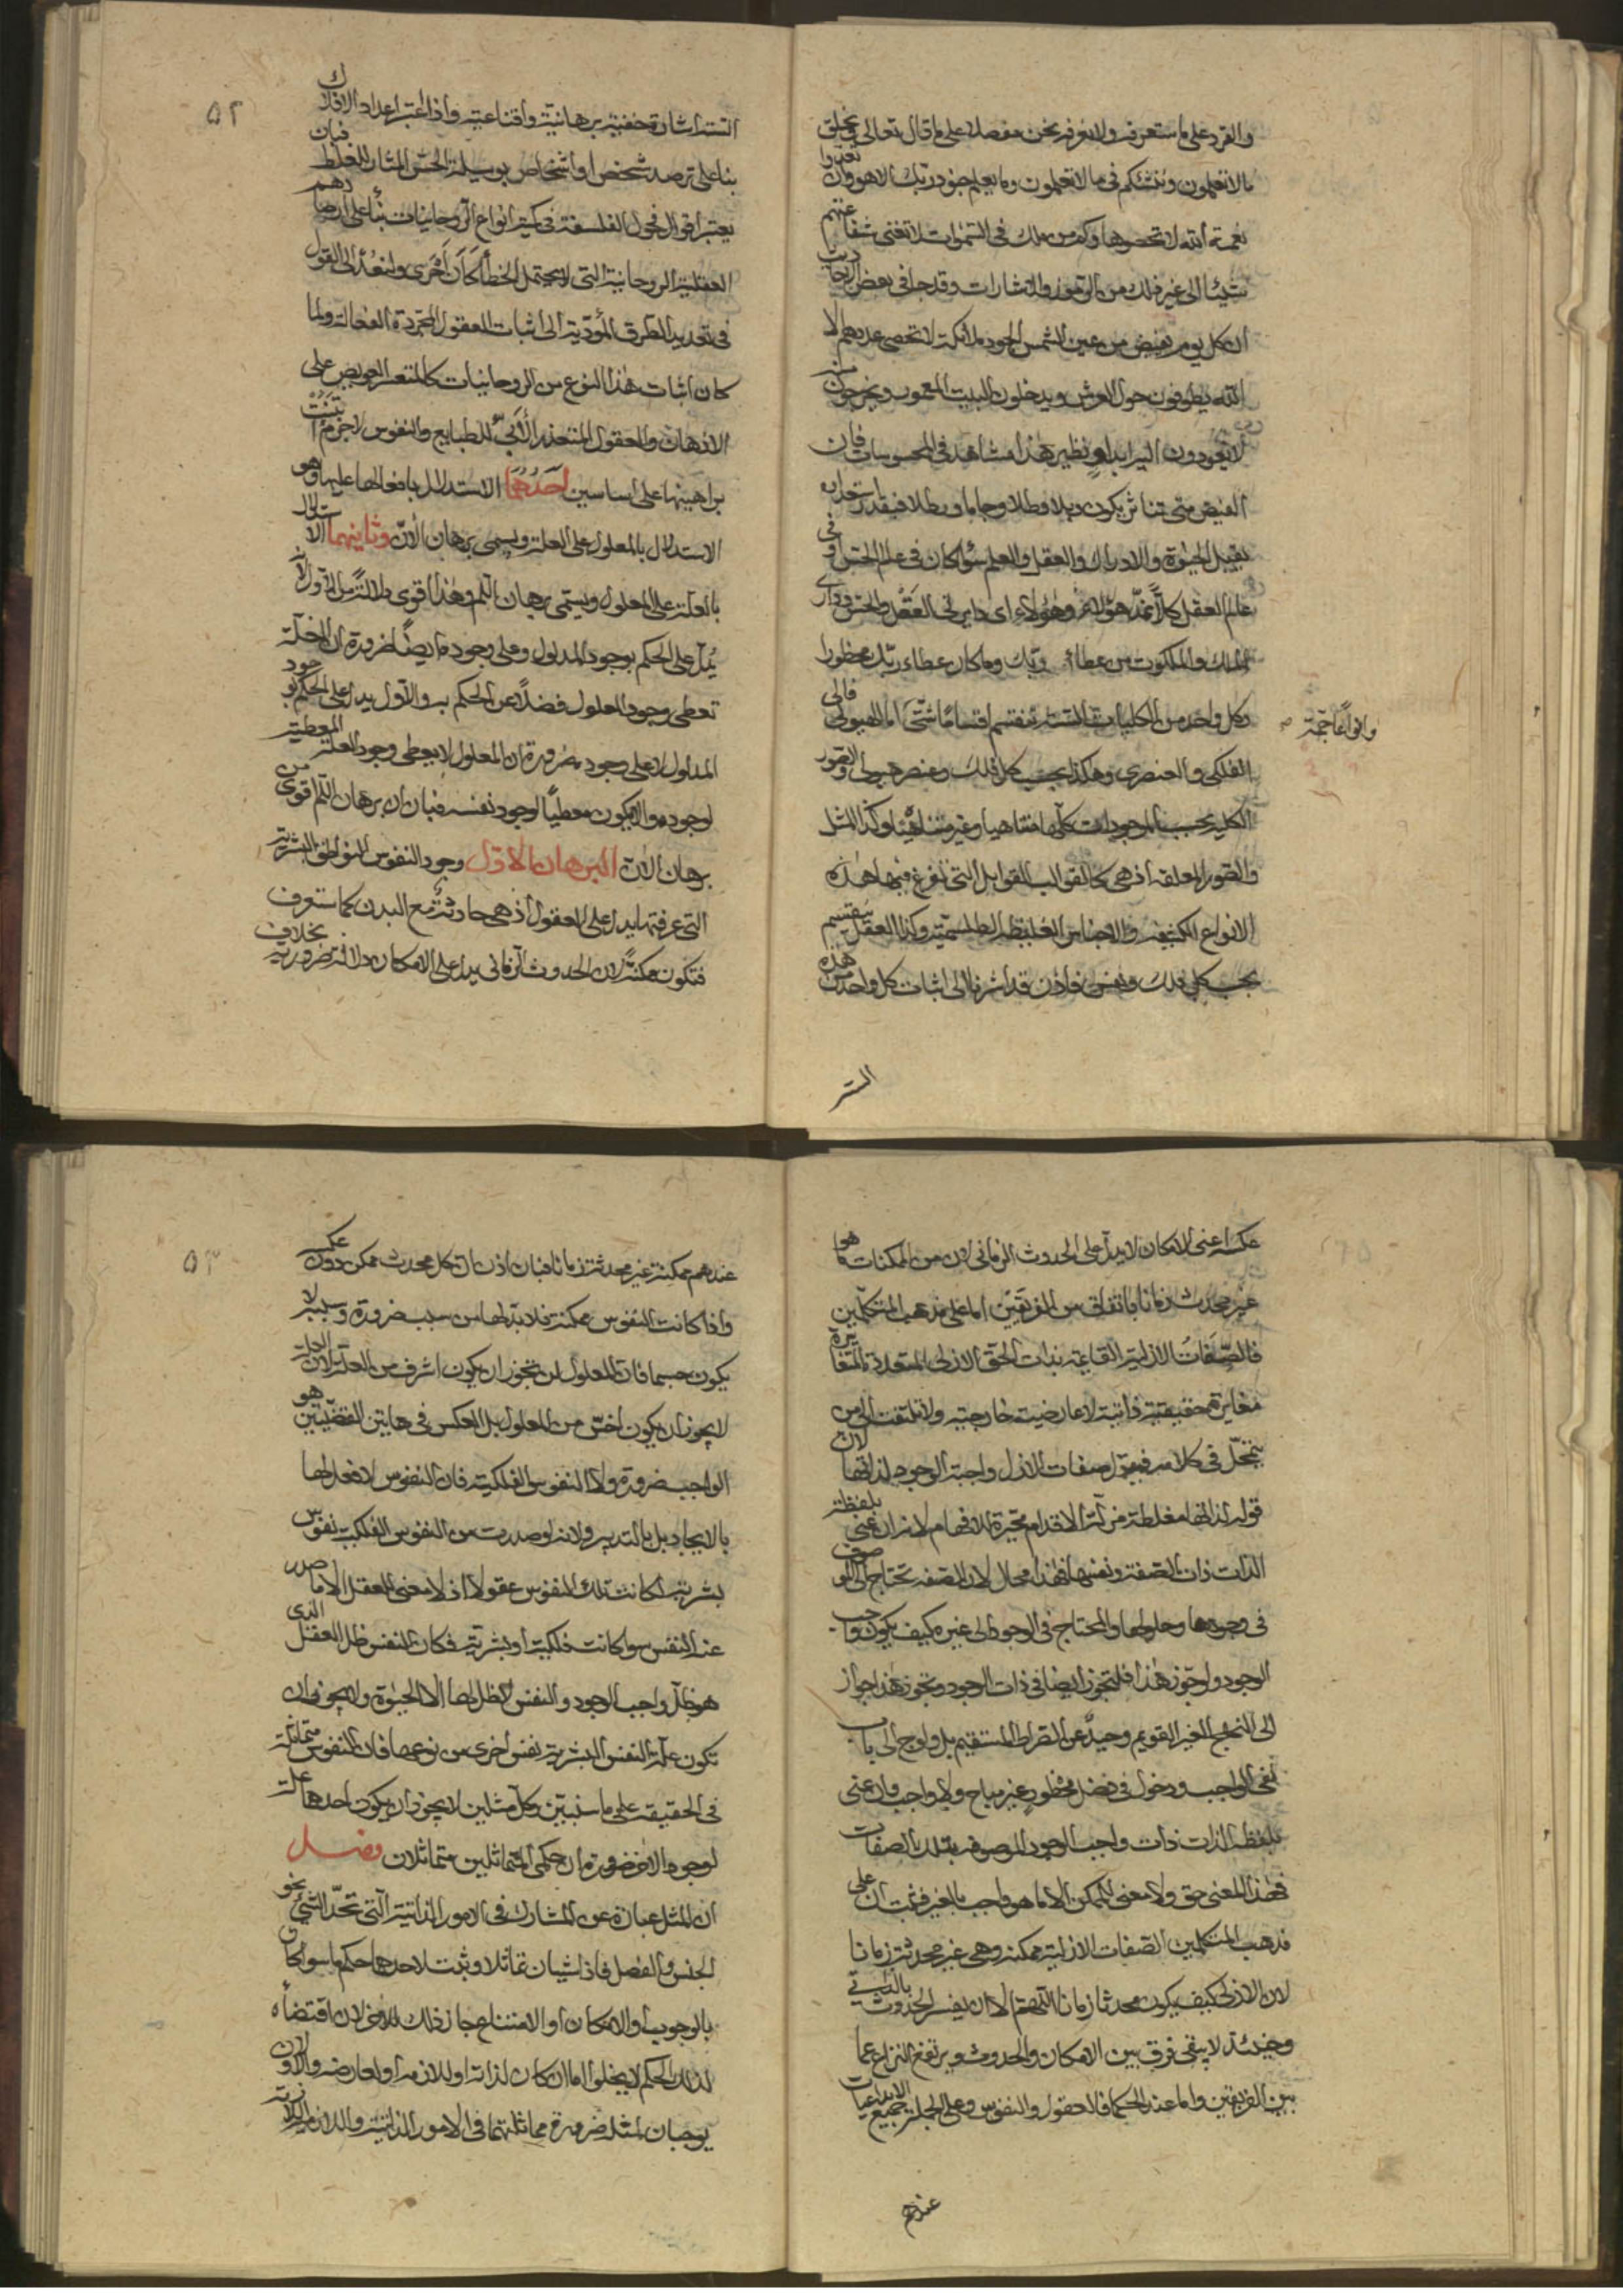 والقرد على ما ستعرف ولا نعرفه نحن مفصلا على ما قال تعالى ويخلق
ما لا تعلمون وننشئكم في ما لا تعلمون وما يعلم جنود ربك الا هو وان تعدوا
نعمة الله لا تحصوها وكم من ملك في السموات لا تغنى شفاعتهم
شيئا الى غير ذلك من الرموز والاشارات وقد جا في بعض
ان كل يوم يفيض من عين الشمس الجود ملائكة لا تحصى عددهم الا
الله يطوفون حول العرش ويدخلون البيت المعمور ويخرجون منه
لا يعودون اليه ابدا و نظير هذا مشاهد في المحسوسات فان
الفيض متى تناثر يكون وبلا وطلا وجاما ورطلا فبقدر استعداده
يقبل الحيوة والادراك والعقل والعلم سوا كان في عالم الحس او في
عالم العقل كلا نمد هؤلاء وهؤلاء اى دايرتى العقل والحس ودارى
الملك والملكوت من عطاء ربك وما كان عطاء ربك محظورا
وكل واحد من الكليات الستة ينقسم اقساما شتى اما الهيولى فالى
وانواعا جمة صح
الفلكى والعنصرى وهكذا بحسب كل فلك وعنصر هيولى والصور
الكلية بحسب الموجودات كلها متناهيا وغير متناهية وكذا المثل
والصور المعلقة اذ هي كالقوالب القوابل التي تفرغ فيها هذه
الانواع الكثيفة والاجناس الغليظة الطلسمية وكذا العقل ينقسم
بحسب كل فلك ونفس فاذن قد اشرنا الى اثبات كل واحد من هذه
الستة
٥٢
الستة اشارة خفية برهانية واقناعية واذا اعتبر اعداد الافلاك
بنا على ترصد شخص او اشخاص بوسيلة الحس المثار للغلط فبان
يعتبر اقوال فحول الفلسفة في كثير انواع الروحانيات بنأ على ارصادهم
العقلية الروحانية التي لا يحتمل الخطأ كان احرى ولنعد الى القول
في تعديد الطرق المؤدية الى اثبات العقول المجردة الفعالة ولما
كان اثبات هذا النوع من الروحانيات كالمتعسر العويص على
الاذهان والعقول المتعذر الأبى للطبايع والنفوس لا جرم ابتنت
براهينها على اساسين احدهما الاستدلال بافعالها عليها وهو
الاستدلال بالمعلول على العلة ويسمى برهان الان وثانيهما الاستدلال
بالعلة على المعلول ويسمى برهان اللم وهذا اقوى دلالة من الاول لانه
يدل على الحكم بوجود المدلول وعلى وجوده ايضا ضرورة ان العلة
تعطى وجود المعلول فضلا عن الحكم به والاول يدل على الحكم بوجود
المدلول لا على وجوده ضرورة ان المعلول لا يعطى وجود العلة المعطية
لوجوده والا يكون معطيا لوجود نفسه فبان ان برهان اللم اقوى من
برهان الان البرهان الاول وجود النفوس النواطق البشرية
التي عرفتها يدل على العقول اذ هي حادثة مع البدن كما ستعرف
فتكون ممكنة لان الحدوث الزماني يدل على الامكان دلالة ضرورية بخلاف
عكسه اعنى الامكان لا يدل على الحدوث الزماني لان من الممكنات ما هو
غير محدث زمانا باتفاق من الفريقين اما على مذهب المتكلمين
فالصفات الازلية القايمة بذات الحق الازلى المتعددة المتغايرة
مغايرة حقيقية ذاتية لا عارضية خارجية ولا تلتفت الى من
يتمحل في كلامه فيقول صفات الازل واجبة الوجود لذاتها لان
قوله لذاتها مغلطة مزلة الاقدام محيرة الافهام لانه ان عنى بلفظة
الذات ذات الصفة ونفسها فهذا محال لان الصفة تحتاج الى الموصوف
في وجودها وحلولها والمحتاج في الوجود الى غيره كيف يكون واجب
الوجود ولو جوز هذا فليتجوز ايضا في ذات الوجود وتجوز هذا جواز
الى النهج الغير القويم وحيد عن الصراط المستقيم بل ولوج الى باب
نفى الواجب ودخول في فصل محظور غير مباح ولا واجب وان عنى
بلفظة الذات ذات واجب الوجود الموصوفة بتلك الصفات
فهذا المعنى حق ولا معنى للممكن الا ما هو واجب بالغير فثبت ان على
مذهب المتكلمين الصفات الازلية ممكنة وهي غير محدثة زمانا
لان الازلى كيف يكون محدثا زمانا اللهم الا ان يفسر الحدوث بالذاتى
وحينئذ لا يبقى فرق بين الامكان والحدوث ويرتفع النزاع عما
بين الفريقين واما عند الحكما فالعقول والنفوس وعلى الجملة جميع الابداعيات
عندهم
٥٣
عندهم ممكنة غير محدثة زمانا فبان اذن ان كل محدث ممكن دون عكسه
واذا كانت النفوس ممكنة فلا بد لها من سبب ضرورة وسببها لا
يكون جسما فان المعلول لن يجوز ان يكون اشرف من العلة لان العلة
لا يجوز ان يكون اخس من المعلول بل العكس في هاتين القضيتين هو
الواجب ضرورة ولا النفوس الفلكية فان النفوس لا فعل لها
بالايجاد بل بالتدبير ولانه لو صدرت من النفوس الفلكية نفوس
بشرية لكانت تلك النفوس عقولا اذ لا معنى للعقل الا ما صدر
عنه النفس سوا كانت فلكية او بشرية فكان النفس ظل العقل الذى
هو ظل واجب الوجود والنفس لا ظل لها الا الحيوة ولا يجوز ان
تكون علة النفس البشرية نفس اخرى من نوعها فان النفوس متماثلة
في الحقيقة على ما سنبين وكل مثلين لا يجوز ان يكون احدهما علة
لوجود الاخر ضرورة ان حكمى المتماثلين متماثلان فصل
ان المثل عبارة عن المشارك في الامور الذاتية التي تحد الشئ نحو
الجنس والفصل فاذا شيان تماثلا وثبت لاحدهما حكم ما سوا كان
بالوجوب او الامكان او الامتناع جاز ذلك للاخر لان اقتضأه
لذلك الحكم لا يخلوا اما ان كان لذاته او للازمه او لعارضه والاولان
يوجبان لمثله ضرورة مماثلتهما في الامور الذاتية واللازمة